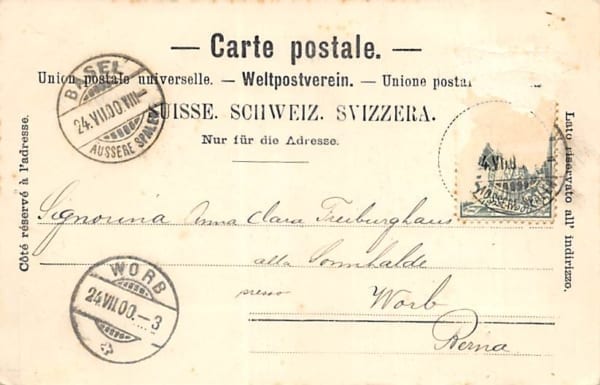 — Carte postale. —
Union postale universelle. — Weltpostverein. — Unione posta
SUISSE. SCHWEIZ. SVIZZERA.
Nur für die Adresse.
Côté réservé à l'adresse.
Lato riservato all' indirizzo.
BASEL
24.VII.00.VIII
AUSSERE SPALEN
Signorina Anna Clara Freiburghaus
alla Sonnhalde
presso Worb
Berna
WORB
24.VII.00.–3